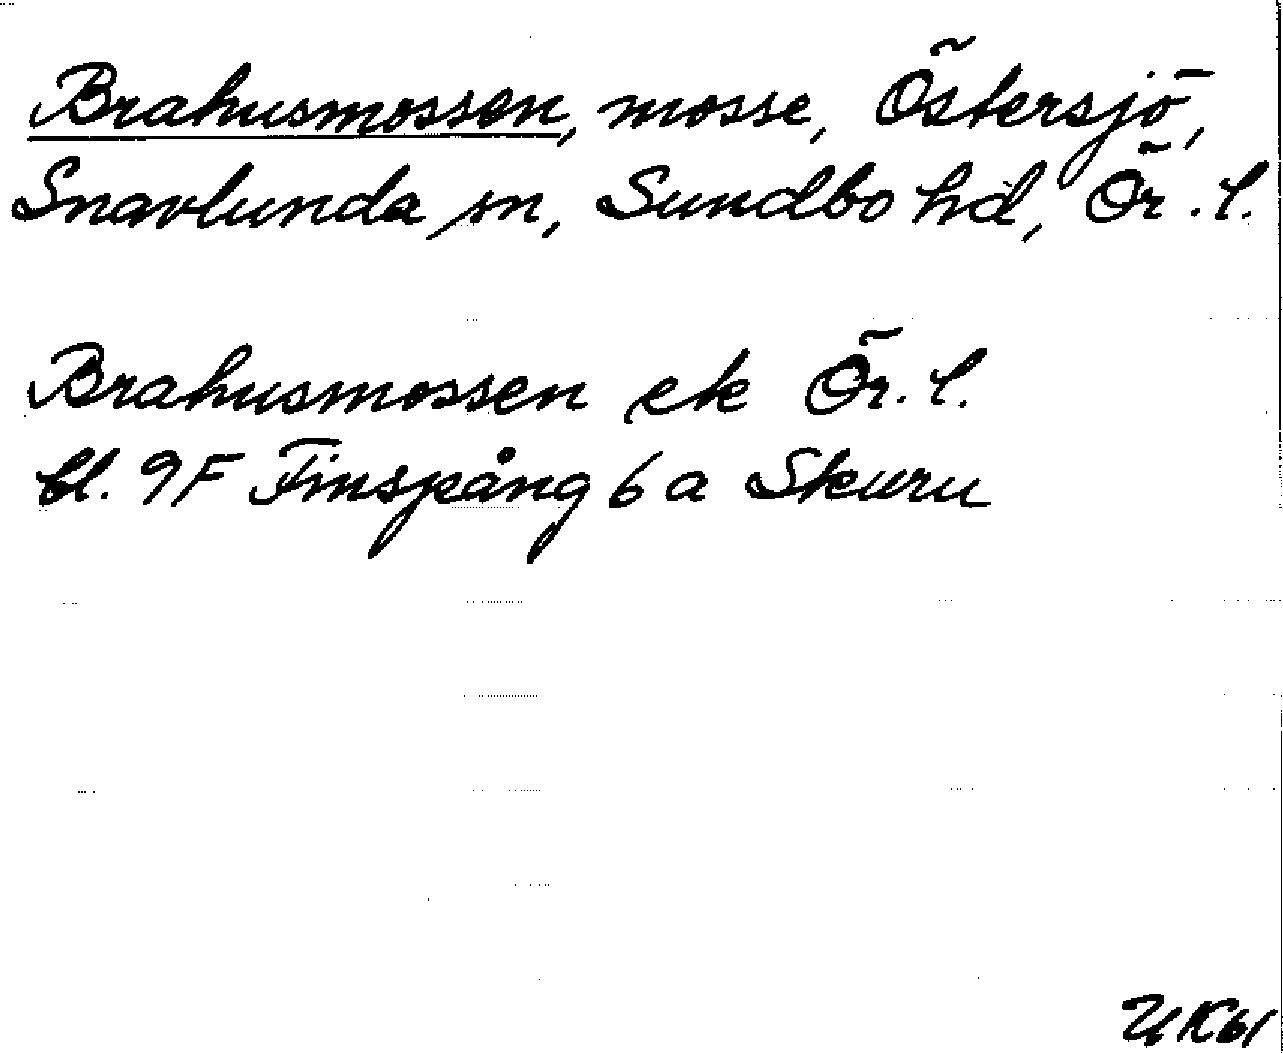 Brahusmossen, mosse, Östersjö,
Snavlunda sn, Sundbo hd, Ör. l.
Brahusmossen ek Ör. l.
bl. 9F Finspång 6 a Skuru
UK61